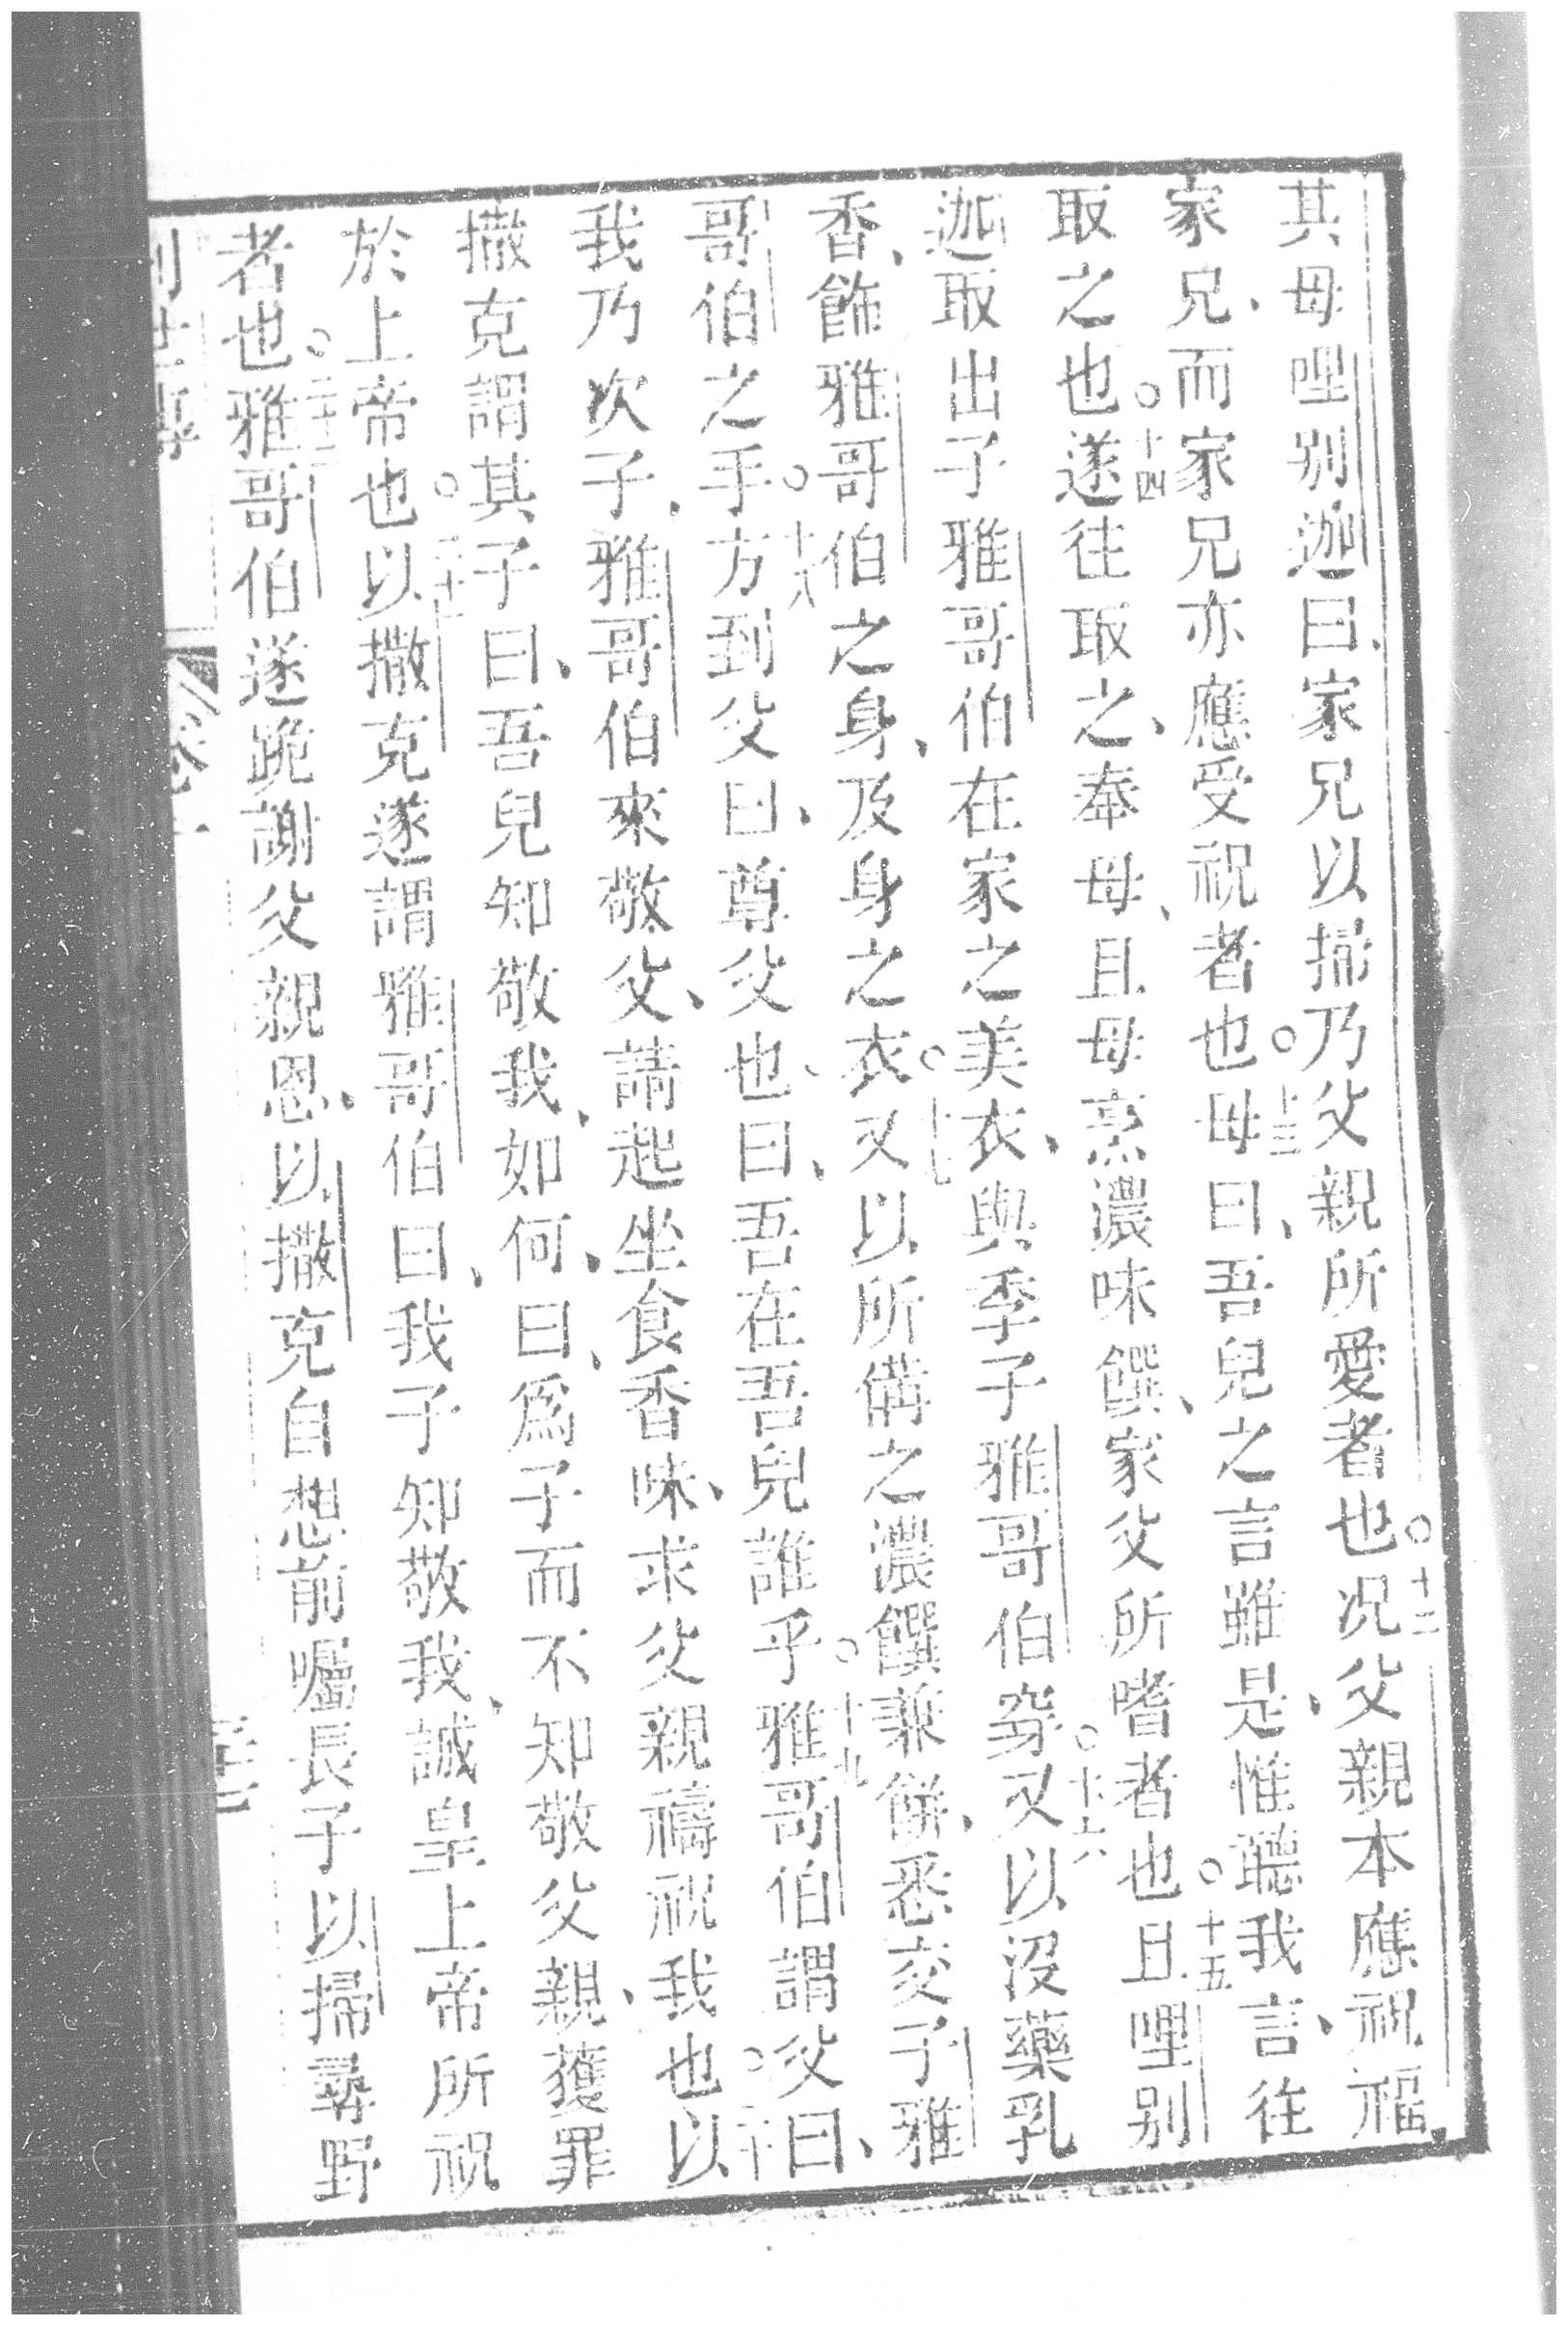 其母哩别迦曰、家兄以掃乃父親所愛者也○十二况父親本應祝福、
家兄、而家兄亦應受祝者也○十三母曰、吾兒之言雖是、惟聽我言、往
取之也○十四遂往取之、奉母、且母烹濃味饌、家父所嗜者也○十五且哩别
迦取出子雅哥伯在家之美衣、與季子雅哥伯穿○十六又以没藥乳
香、飾雅哥伯之身、及身之衣○十七又以所備之濃饌兼餅、悉交子雅
哥伯之手○十八方到父曰、尊父也、曰、吾在吾兒誰乎○十九雅哥伯謂父曰、
我乃次子、雅哥伯來敬父、請起坐食香味、求父親禱祝我也○二十以
撒克謂其子曰、吾兒知敬我、如何、曰、爲子而不知敬父親、獲罪
於上帝也○二十一以撒克遂謂雅哥伯曰、我子知敬我、誠皇上帝所祝
者也○二十二雅哥伯遂跪謝父親恩、以撒克自想前囑長子以掃尋野